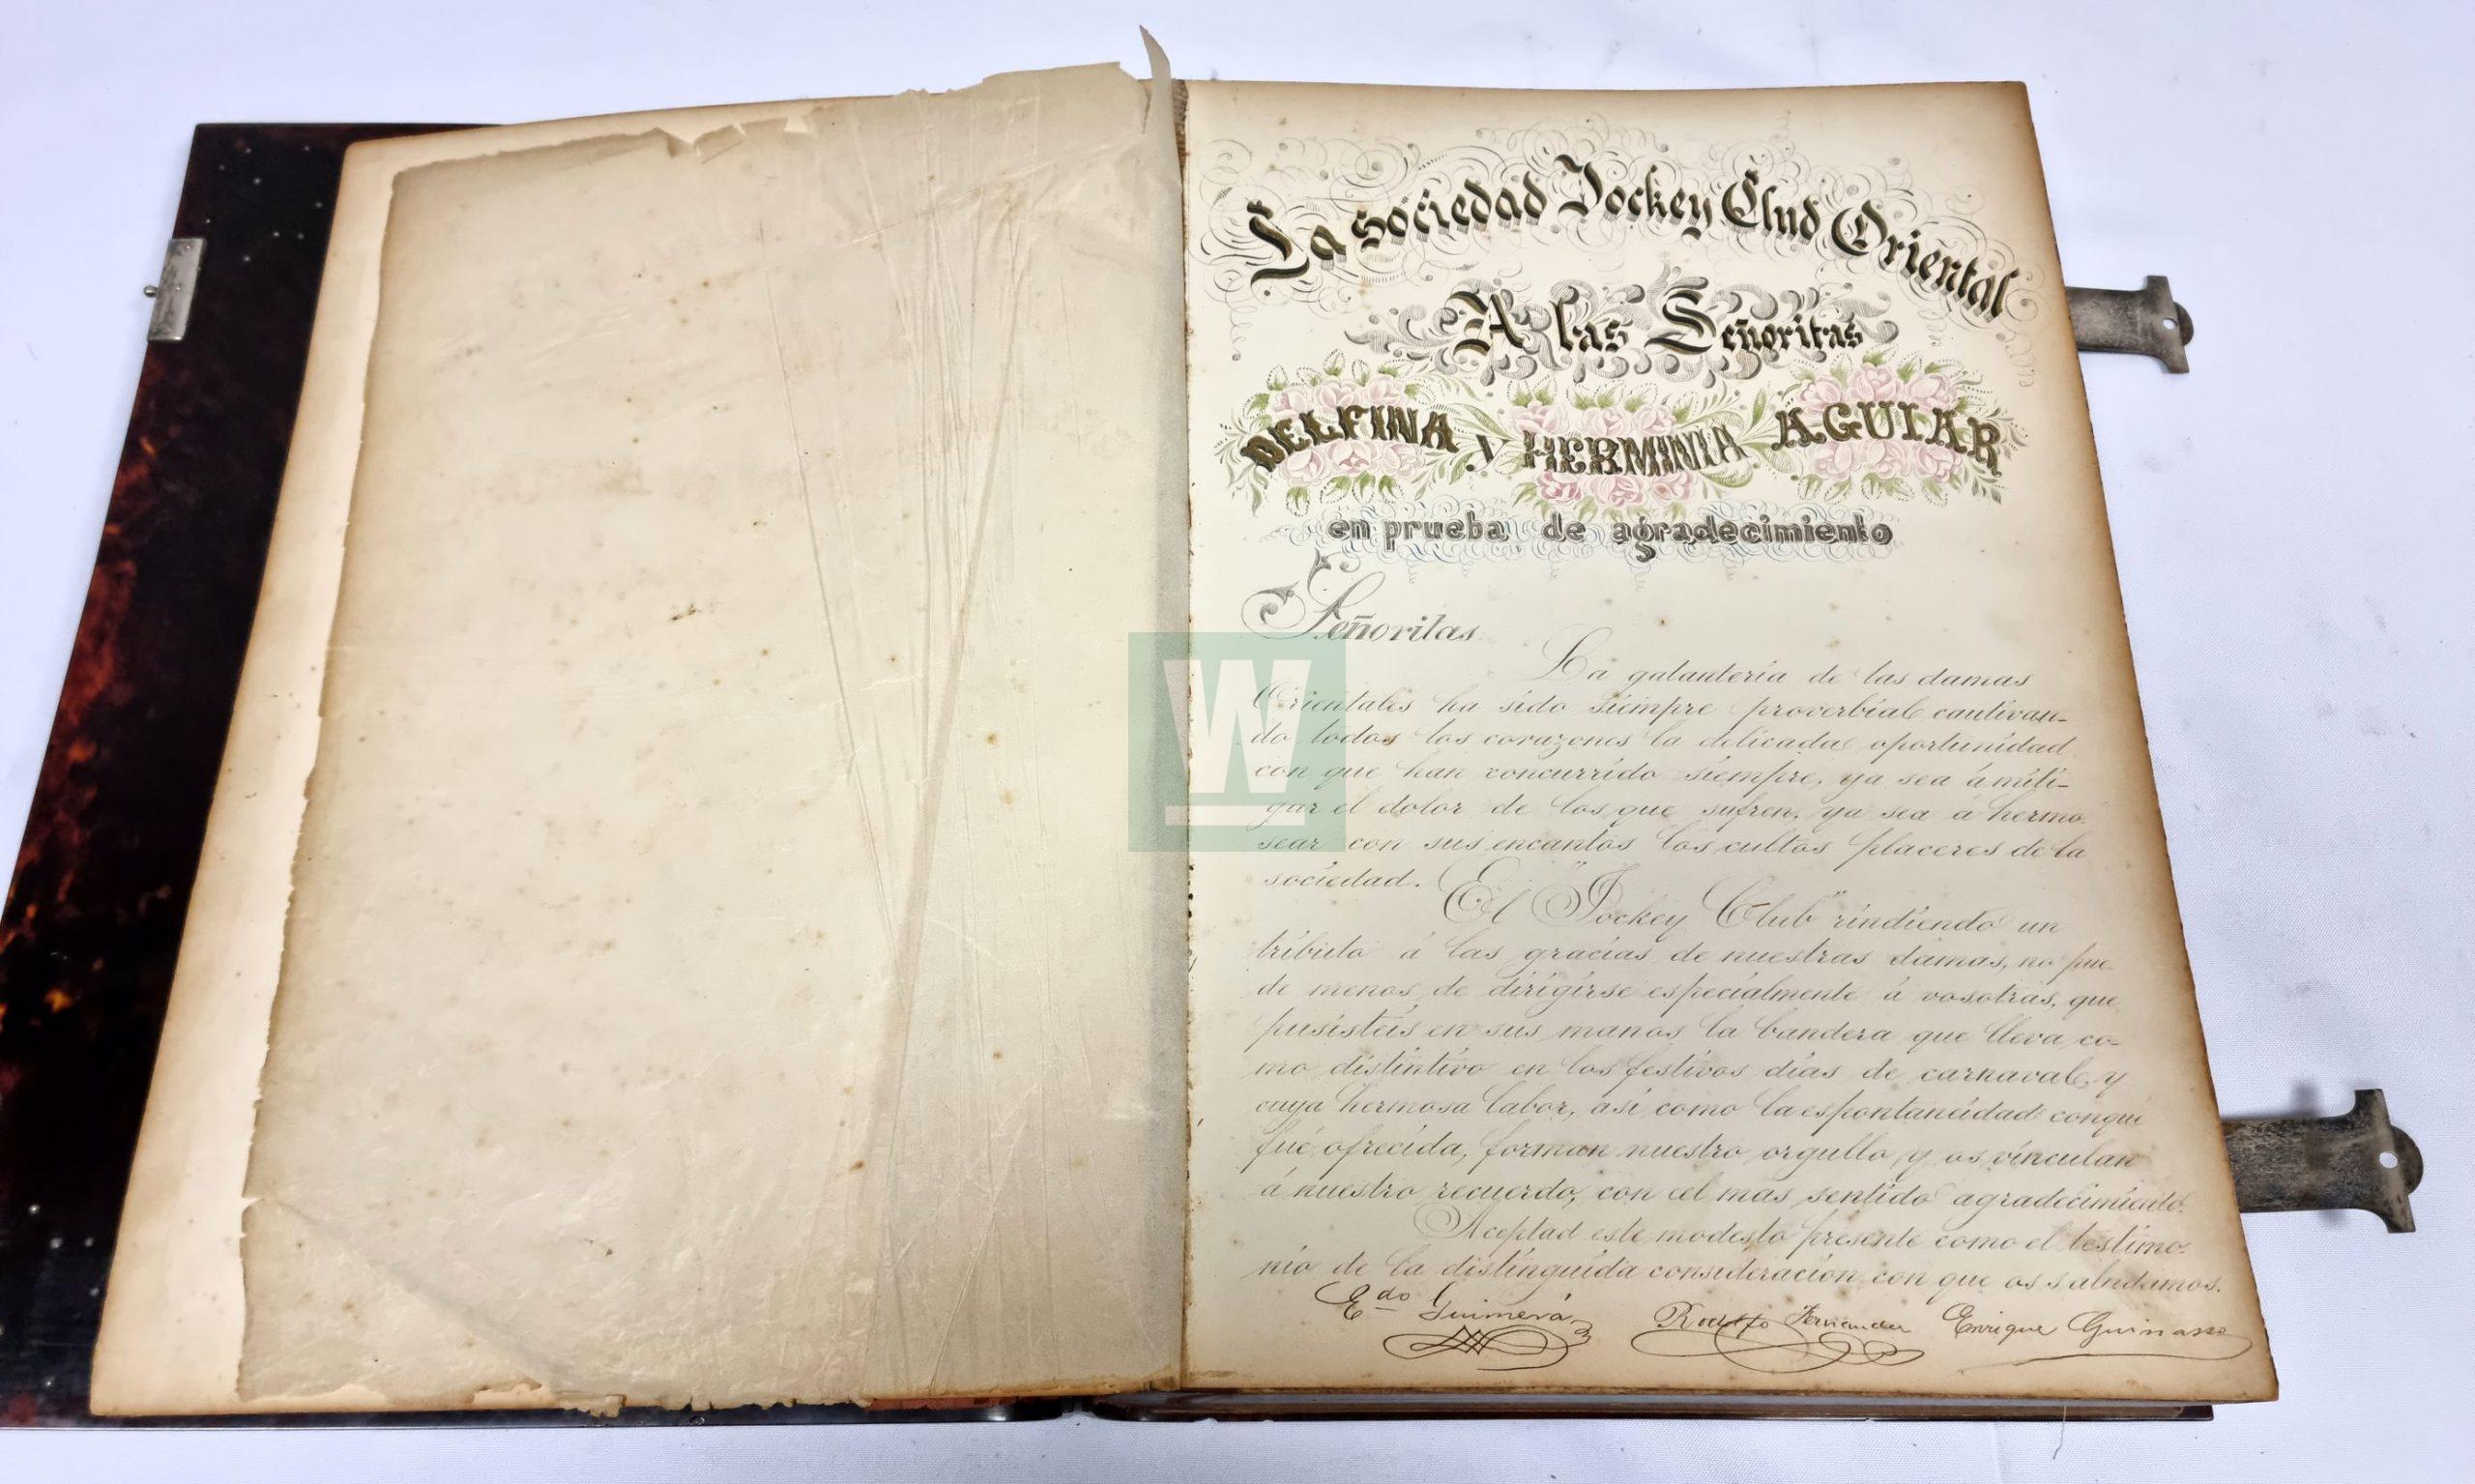 La sociedad Jockey Clud Oriental
A las Señoritas
DELFINA Y HERMINIA AGUIAR
en prueba de agradecimiento
Señoritas
La galantería de las damas
Orientales ha sido siempre proverbial cautivan-
do todos los corazones la delicada oportunidad
con que han concurrido siempre, ya sea á miti-
gar el dolor de los que sufren, ya sea á hermo
sear con sus encantos los cultos placeres de la
sociedad.
El "Jockey Club" rindiendo un
tributo á las gracias de nuestras damas, no pue
de menos de dirigirse especialmente á vosotras, que
pusisteis en sus manos la bandera que lleva co-
mo distintivo en los festivos dias de carnaval y
cuya hermosa labor, asi como la espontaneidad conque
fué ofrecida, forman nuestro orgullo y os vinculan
á nuestro recuerdo, con el mas sentido agradecimiento.
Aceptad este modesto presente como el testimo-
nio de la distinguida consideracion con que os saludamos.
Edo Guimerá
Rodolfo Fernandez
Enrique Guinasso
W